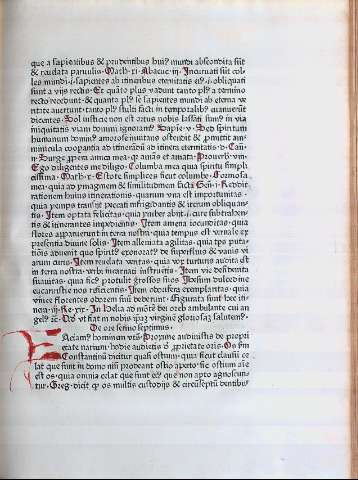 que a sapientibus & prudentibus huiꝰ mundi abscondita sūt
& reuelata paruulis. Math. xi. Abacuc. iij. Incuruati sūt col-
les mundi. i. sapientes ab itineribus eternitatis eiꝰ. i. obliquati
sunt a vijs rectis. Et quāto plus vadunt tanto plꝰ a termino
recto recedunt. & quanto plꝰ se sapientes mundi ab eterna ve
ritate auertunt. tanto plꝰ stulti facti in temporalibꝰ
dicentes. Sol iusticie non est ortus nobis lassati sumꝰ in via
iniquitatis viam domini ignorantes. Sapiē. v. Sed spiritum
humanum dominꝰ amorose inuitans ostendit & ꝓmittit
in itinerādi ab itinera eternitatis. d. Cāti.
ij. Surge ꝓpera amica mea. qꝛ amās et amata. Prouerb. viij.
Ego diligentes me diligo. Columba mea quia spiritu simpli
cissima. Math. x. Estote simplices sicut columbe. Formosa
mea. quia ad ymaginem & similitudinem facta. Gen. i. Reddit
rationem huius itinerationis. quarum vna est importunitas.
quia hyemps transijt peccati infrigidantis & iterum obliquan-
tis. Item optata felicitas. quia ymber abijt. i. cure subtrahen-
tis & itinerantes impedientis. Item amena iocunditas. quia
flores apparuerunt in terra nostra. quia tempus est vernale ex
presentia diuine solis. Item alleuiata agilitas. quia tꝑs puta-
tiōis aduenit quo spiritꝰ exoneratꝰ de superfluis & vanis vi
arum curis. Item reuelata veritas. quia vox turturis audita est
in terra nostra. verbi incarnati instructis. Item vie
suauitas. quia ficꝰ protulit grossos suos. Ihesum dulcedine
eucaristie nos reficientis. Item odorifera exemplaritas. quia
vinee florentes odorem suū dederunt. Figurata sunt hec iti-
nera. iij. Re. xix. In Helia ad mōtē dei oreb ambulante cui an
gelꝰ &c. Qd vt fiat in nobis virginē gloriosaꝫ salutemꝰ.
De ore sermo septimus.
Faciamꝰ hominem vt sꝫ. Proxime audiuistis de propri
etate narium. hodie audietis d ꝓprietate oris. Os
dicitur quasi ostium. quia sicut clausū ce
lat que sunt in domo nisi prodeant ostio aperto. sic ostium aīe
est os. quia omnia celat que sunt eiꝰ que non apto agnoscun-
tur. Greg. dicit qꝛ os multis custodijs & circūseptū dentibꝰ